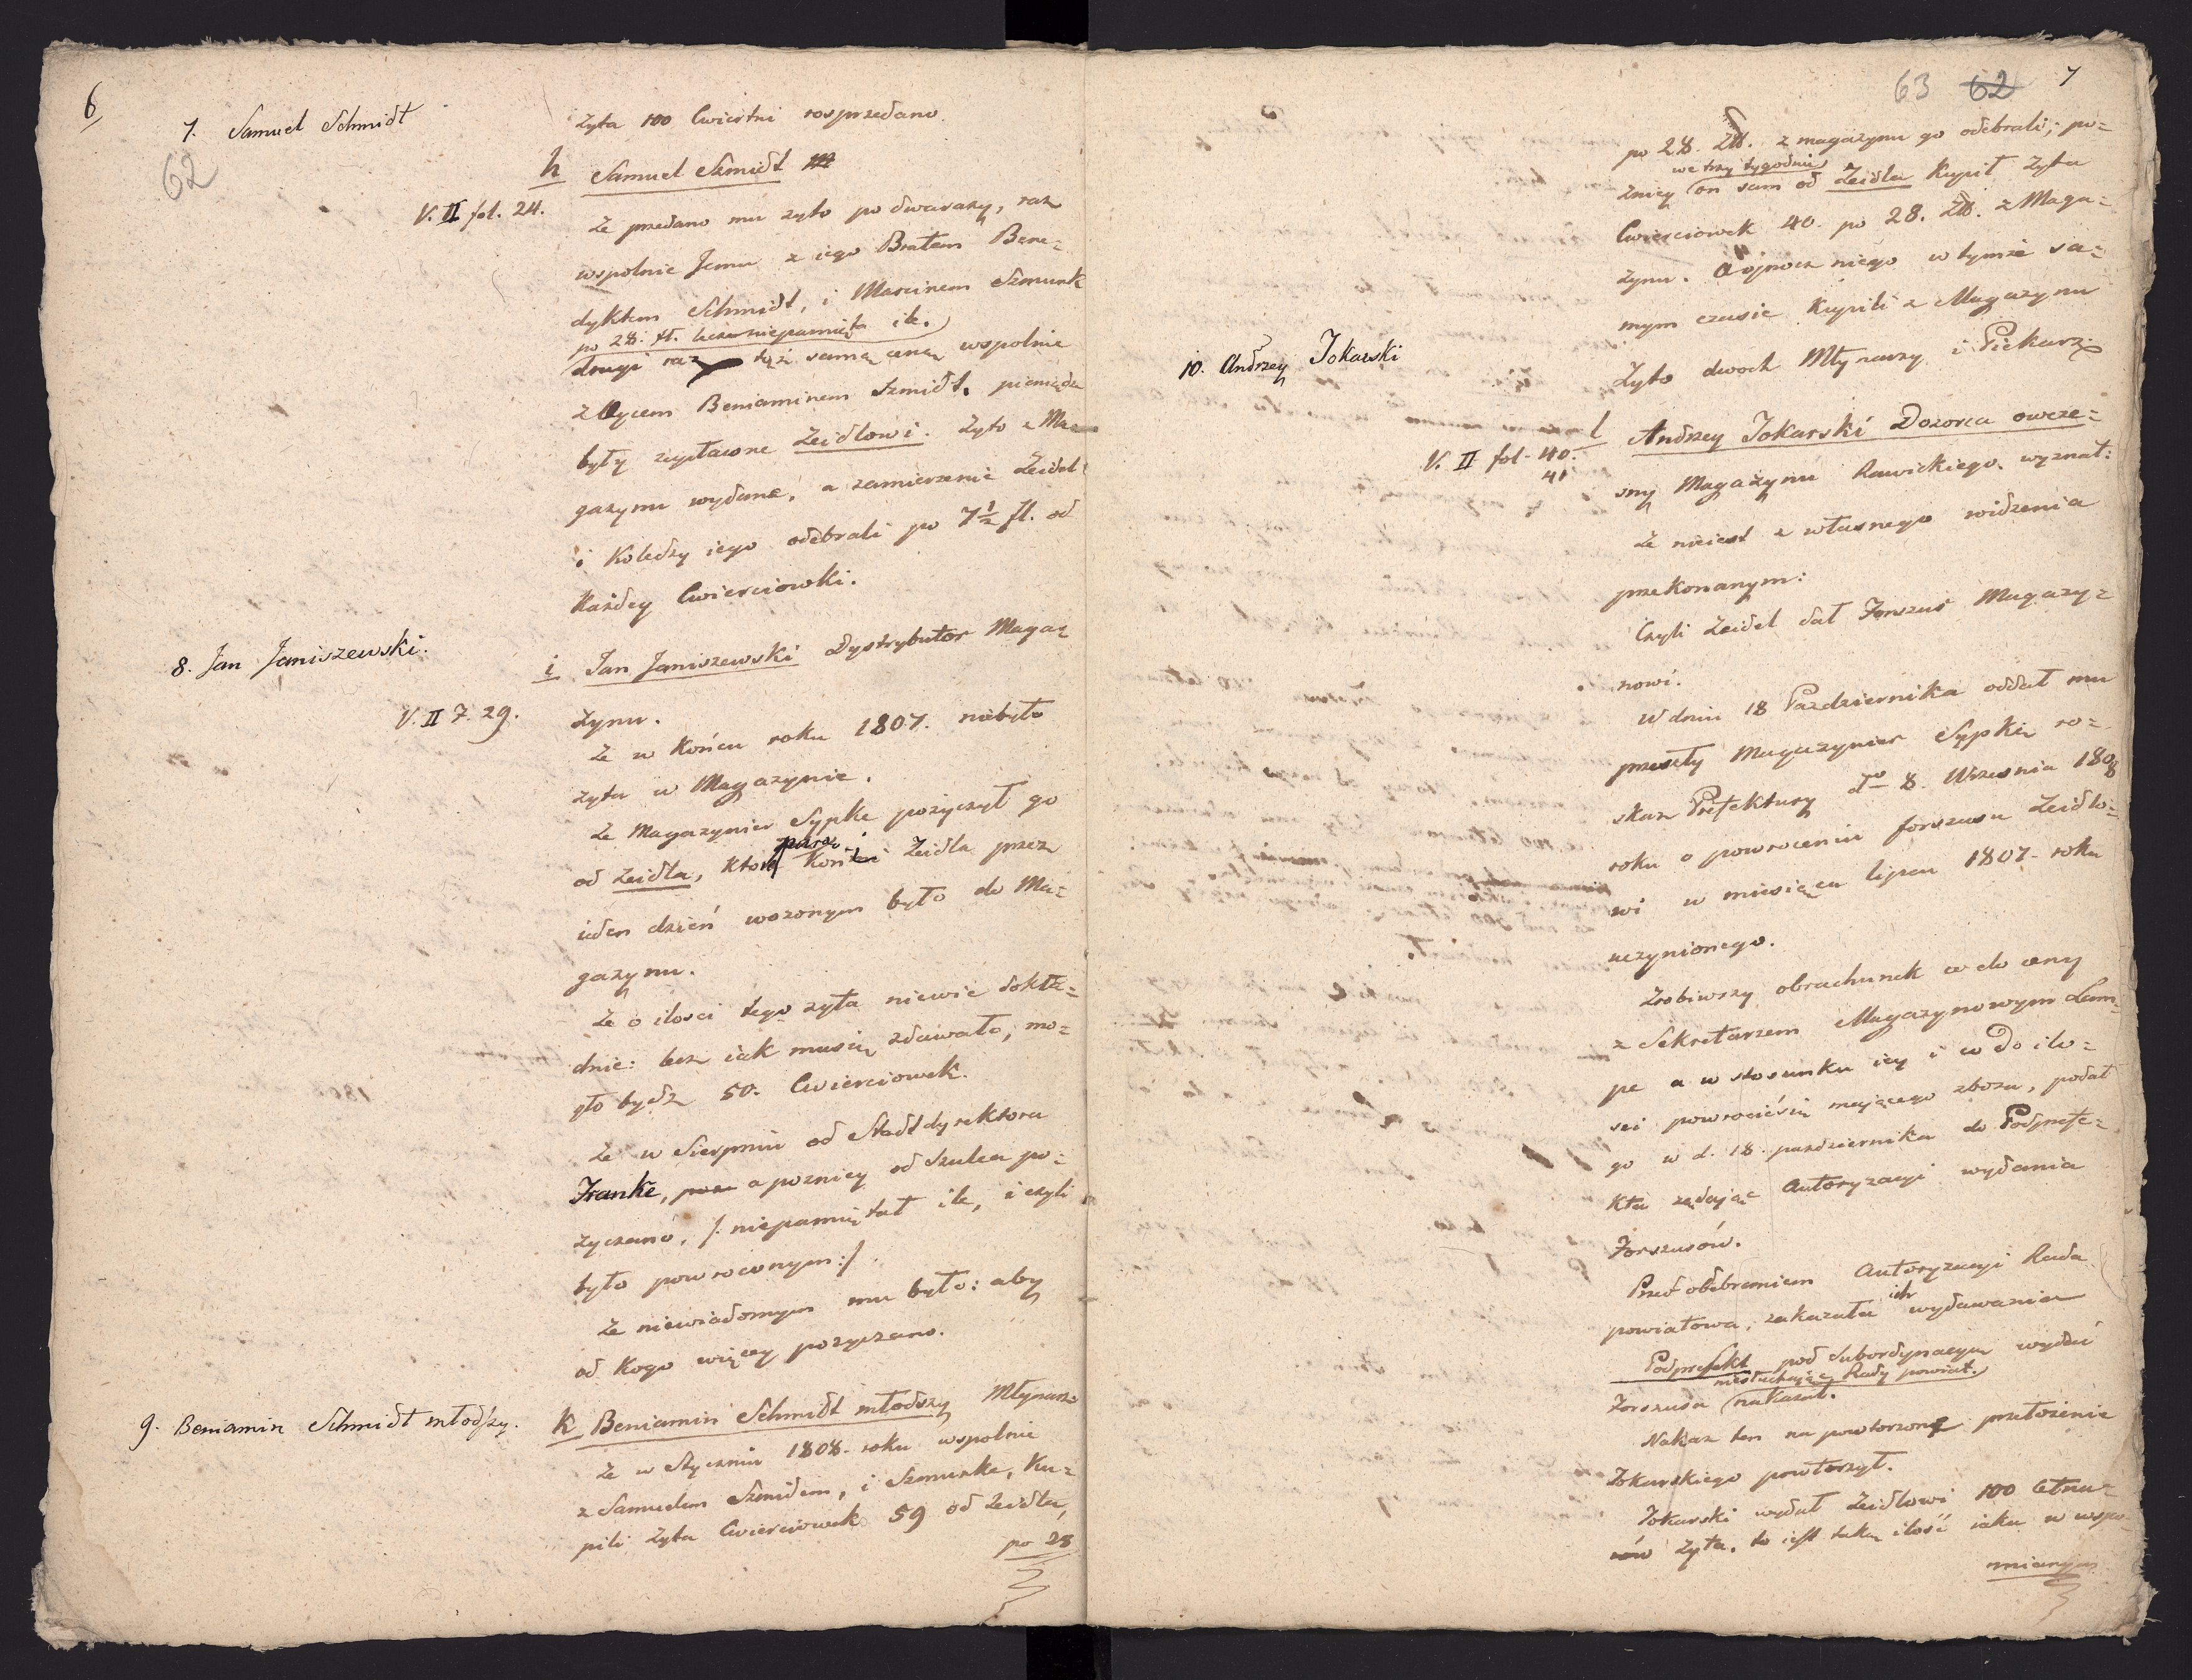 6
7. Samuel Schmidt
62
żyta 100 Cwiertni rosprzedano.
h Samuel Szmidt
V. II fol. 24.
że przedano mu zyto po dwarazy, raz
wspolnie Jemu z iego Bratem Bene=
dyktem Schmidt, i Marcinem Szmunk
po 28. fl. lecz niepamięta ile.
drugi raz tęż samą cenę wspolnie
z Oycem Beniaminem Szmidt, pieniądze
były zapłacone Zeidlowi. Zyto z Ma=
gazynu wydane, a zamierzenie Zeidel
i Koledzy iego odebrali po 7½ fl. od
Każdey Cwierciowki.
8. Jan Janiszewski.
i Jan Janiszewski Dystrybutor Maga=
V. II f. 29.
zynu.
Ze w Końcu roku 1807. niebyło
zyta w Magazynie.
Ze Magazynier Sypke pożyczył go
od Zeidla, ktore parą Koni Zeidla przez
ieden dzień wozonym było do Ma=
gazynu.
Ze o ilosci tego zyta niewie dokła=
dnie: lecz iak musię zdawało, mo=
gło bydz 50. Cwierciowek.
Ze w Sierpniu od Stadtdyrektora
Franke, a pozniey od Szulca po=
zyczano, /: niepamiętał ile, i czyli
było powroconym :/
Ze niewiadomym mu było: aby
od Kogo więcey pozyczano.
9. Beniamin Schmidt młodszy.
k Beniamin Schmidt młodszy Młynarz
Ze w Styczniu 1808. roku wspolnie
z Samuelem Szmidem, i Szmunke, Ku=
pili zyta Cwierciowek 59 od Zeidla,
po 28
63 62 7
po 28. Zł. z magazynu go odebrali; po=
we trzy tygodnie
zniey on sam od Zeidla Kupił zyta
Cwierciowek 40. po 28. Zł. z Maga=
zynu. Oprocz niego w tymże sa=
mym czasie Kupili z Magazynu
Zyto dwoch Młynarzy i Piekarz
10. Andrzey Tokarski
l Andrzey Tokarski Dozorca owcze=
V. II fol. 40.
41
sny Magazynu Rawickiego. wyznał:
Ze nieiest z własnego widzenia
przekonanym:
Czyli Zeidel dał Forszus Magazy=
nowi.
W dniu 18 Pazdziernika oddał mu
przeszły Magazynier Sypke ro=
skaz Prefektury dto 8. Wrzesnia 1808
roku o powroceniu forszusu Zeidlo=
wi w miesiącu lipcu 1807. roku
uczynionego.
Zrobiwszy obrachunek co do ceny
z Sekretarzem Magazynowym Lam=
pe a w stosunku iey i co do ilo=
sci powrocićsię maiącego zboza, podał
go w d. 18. pazdziernika do Podprefe=
kta ządając Autoryzacyi wydania
Forszusów.
Przed odebraniem Autoryzacyi Rada
powiatowa, zakazała ich wydawania
Podprefekt pod Subordynacyą wydać
niesłuchając Rady powiat.
Forszusa nakazał.
Nakaz ten na powtorzone przełożenie
Tokarskiego powtorzył.
Tokarski wydał Zeidlowi 100 Cetna=
rów Zyta, to iest taką ilość iaka w wspo=
mnianym